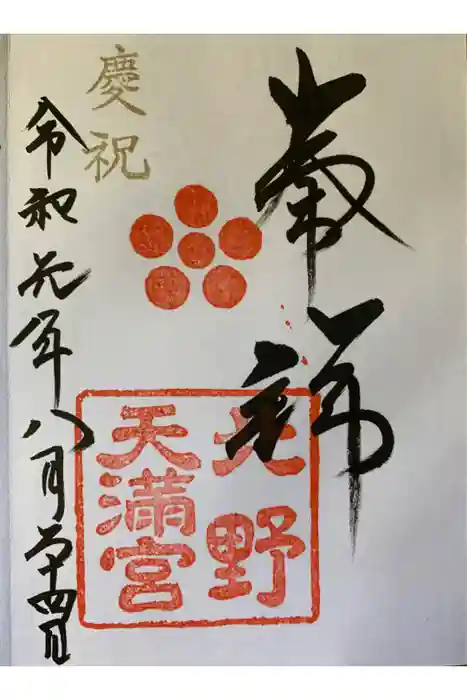 北野
天満宮
慶祝
令和元年八月二十四日